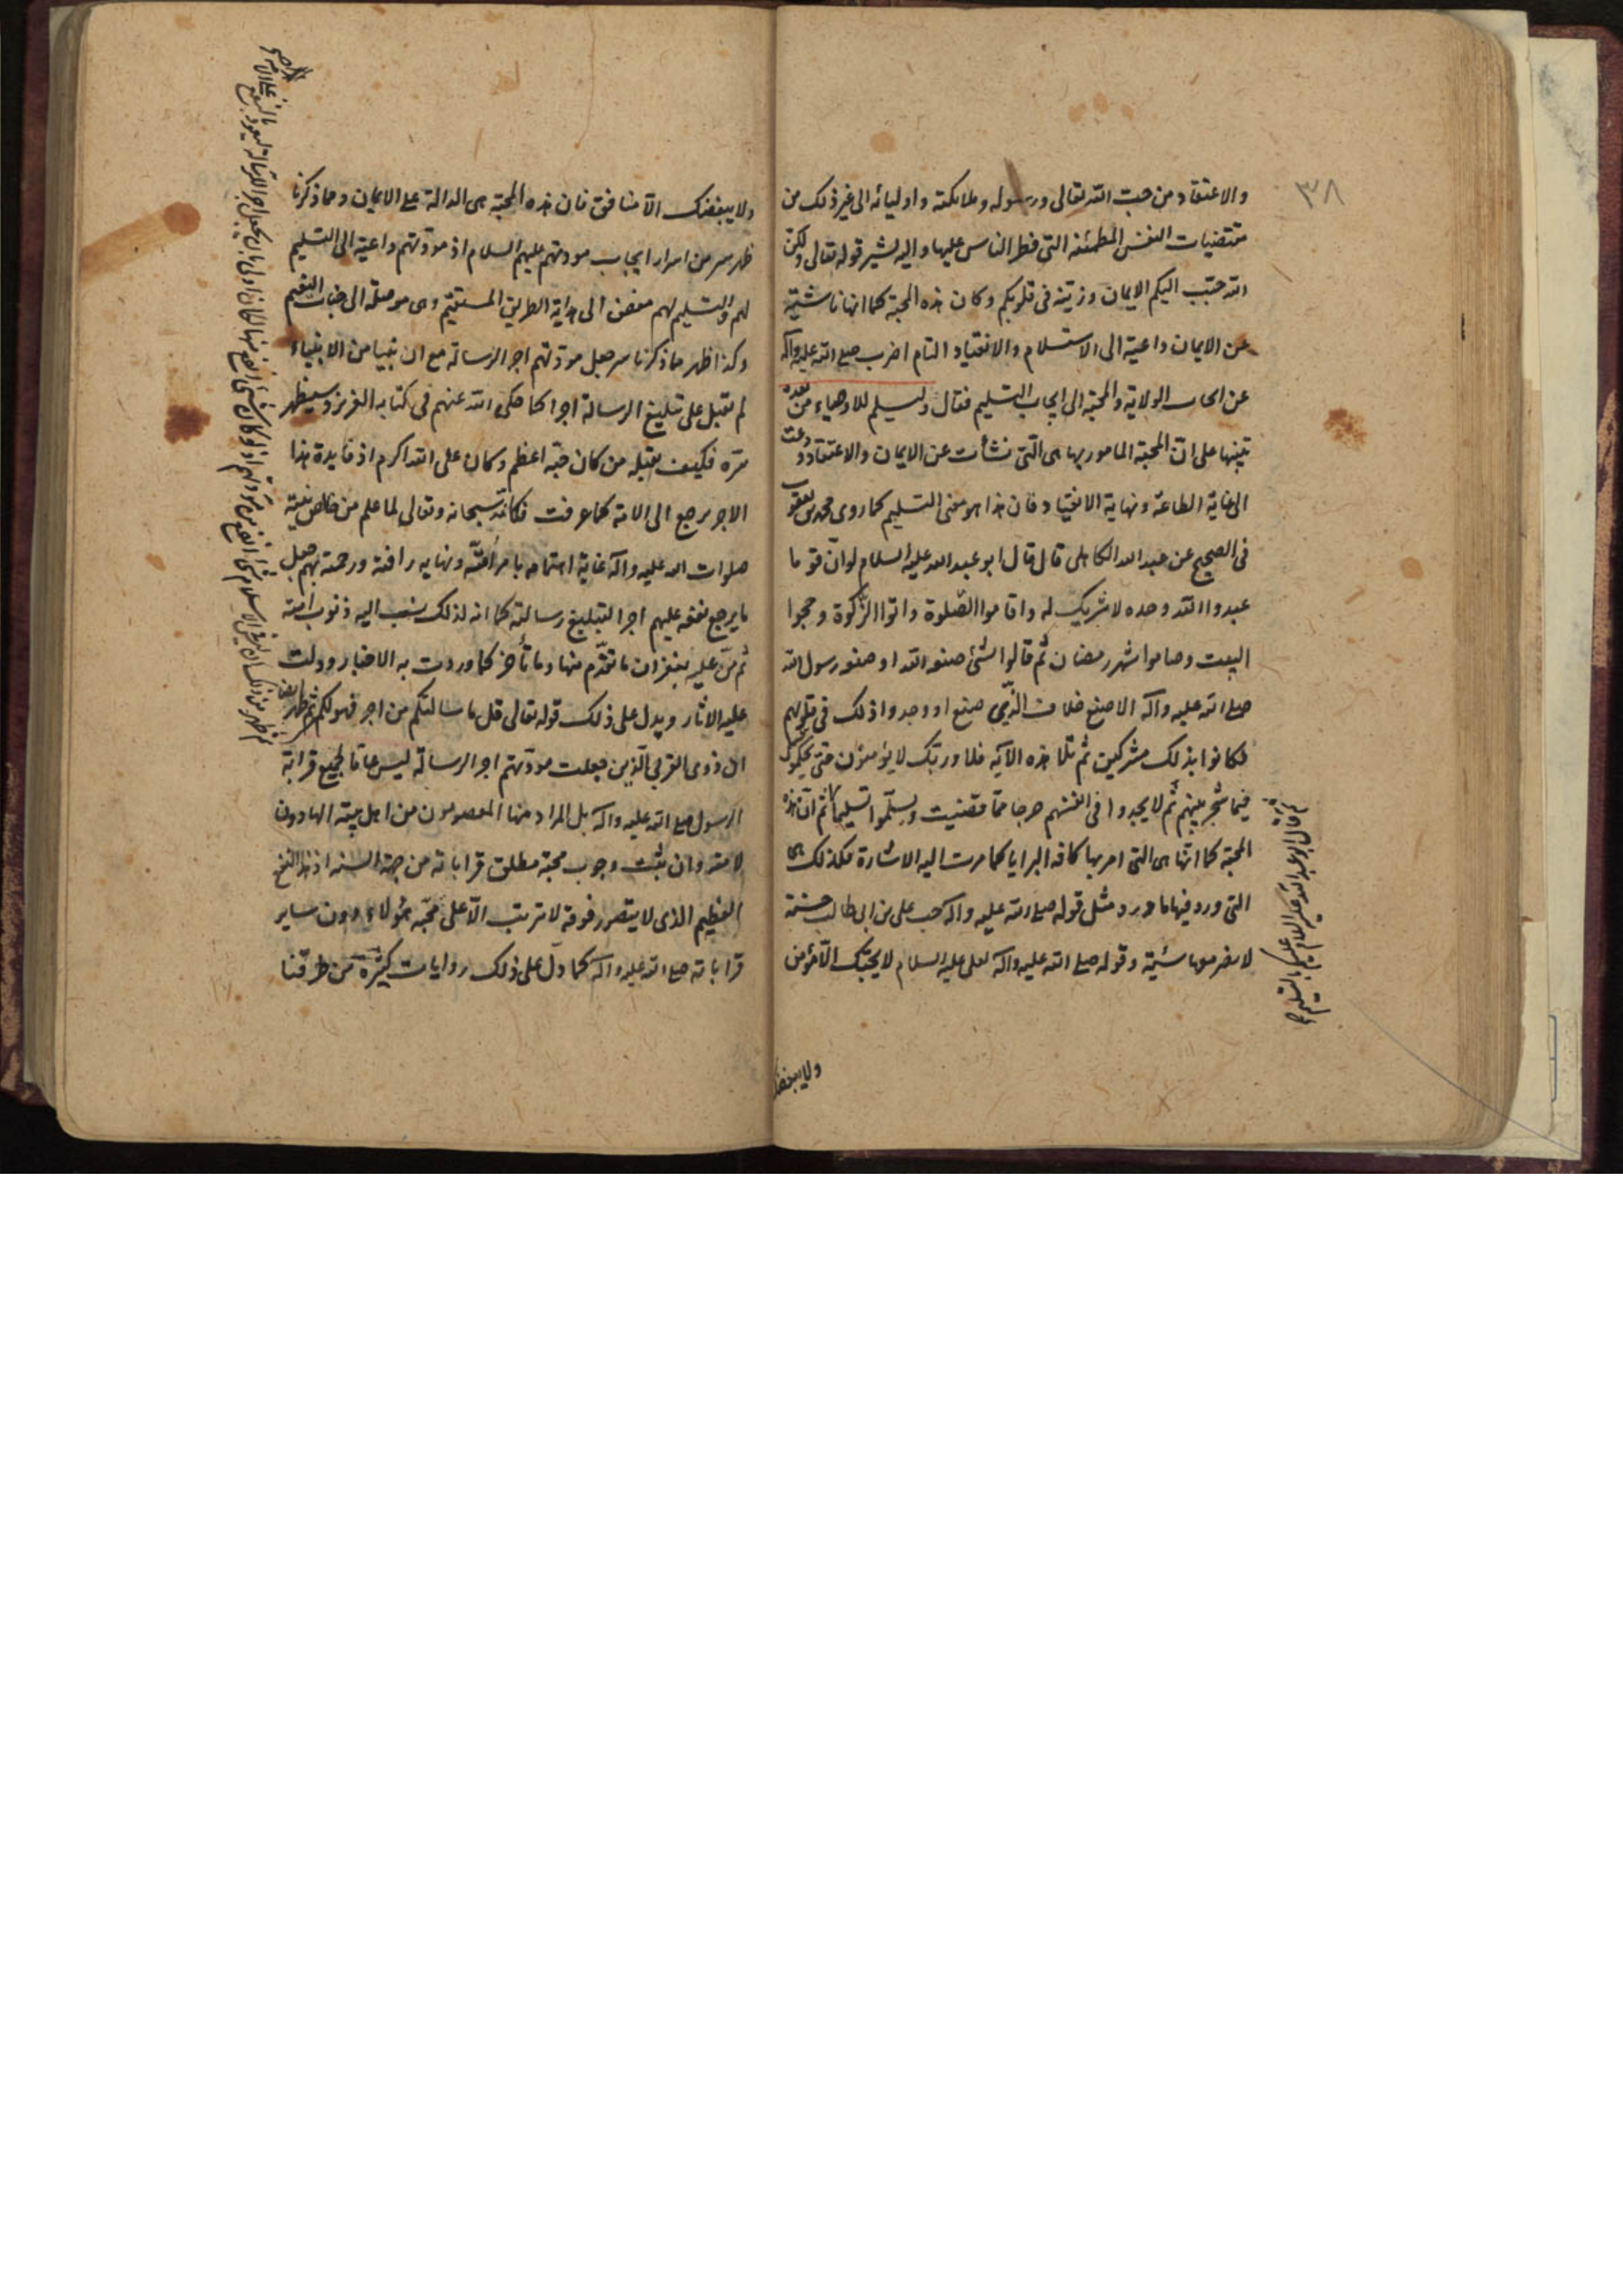 ٣٨
والاعتقاد من حبت الله تعالى ورسوله وملائكته واوليائه الى غير ذلك من
مقتضيات النفس المطمئنه التى فطر الناس عليها واليه يشير قوله تعالى ولكن
الله حبّب اليكم الايمان وزيّنه فى قلوبكم وكان هذه المحبّة كما انها ناشئة
عن الايمان داعية الى الاستسلام والانقياد التام اضرب صلى الله عليه وآله
عن ايجاب الولاية والمحبّة الى ايجاب التسليم فقال وليسلم للاوصياء من بعده
تنبيها على انّ المحبّة المامور بها هى التى نشأت عن الايمان والاعتقاد ودعت
الى غاية الطاعة ونهاية الانقياد فان هذا هو معنى التسليم كما روى محمد بن يعقوب
فى الصحيح عن عبد الله الكاهلى قال قال ابو عبد الله عليه السلام لو انّ قوما
عبدوا الله وحده لا شريك له واقاموا الصّلوة واتوا الزّكوة وحجوا
البيت وصاموا شهر رمضان ثم قالوا لشئ صنعه الله او صنعه رسول الله
صلى الله عليه وآله الا صنع خلاف الّذى صنع او وجدوا ذلك فى قلوبهم
لكانوا بذلك مشركين ثم تلا هذه الآية فلا وربّك لا يؤمنون حتى يحكّموك
فيما شجر بينهم ثم لا يجدوا فى انفسهم حرجا ممّا قضيت ويسلّموا تسليما ثم انّ هذه
المحبّة كما انّها هى التى امر بها كافه البرايا كما مرت اليه الاشارة فكذلك هى
التى ورد فيها ما ورد مثل قوله صلى الله عليه واله حب على بن ابى طالب حسنة
لا يضر معها سيّئة وقوله صلى الله عليه واله لعلى عليه السلام لا يحبّك الّا مؤمن
ولا يبغضك
ثم قال ابو عبد الله عليه السلام عليكم بالتسليم
ولا يبغضك الّا منافق فان هذه المحبّة هى الدالة على الايمان ومما ذكرنا
ظهر سر من اسرار ايجاب مودتهم عليهم السلام اذ مودّتهم داعية الى التسليم
لهم والتسليم لهم مفض الى هداية الطريق المستقيم وهى موصلة الى جنات النعيم
وكذا ظهر مما ذكرنا سر جعل مودّتهم اجر الرسالة مع ان نبيا من الانبياء
لم يقبل على تبليغ الرسالة اجرا كما حكى الله عنهم فى كتابه العزيز وسيظهر
سرّه فكيف يقبله من كان حبّه اعظم وكان على الله اكرم اذ فايدة هذا
الاجر يرجع الى الامة كما عرفت فكانّه سبحانه وتعالى لما علم من خالص نيّته
صلوات الله عليه وآله غاية اهتمامه بامر امّته ونهايه رافته ورحمته بهم جعل
ما يرجع نفعه عليهم اجرا لتبليغ رسالته كما انه لذلك ينسب اليه ذنوب امته
ثم منّ عليه بغفران ما تقدّم منها وما تأخر كما وردت به الاخبار ودلت
عليه الاثار ويدل على ذلك قوله تعالى قل ما سالتكم من اجر فهو لكم ثم ظهر ايضا
ان ذوى القربى الّذين جعلت مودّتهم اجر الرسالة ليس عاما لجميع قرابة
الرسول صلى الله عليه وآله بل المراد منها المعصومون من اهل بيته الهادون
لامته وان ثبت وجوب محبّة مطلق قراباته من جهة السنه اذ هذا النفع
العظيم الذى لا يتصور فوقه لا ترتب الّا على محبّه هؤلاء دون ساير
قراباته صلى الله عليه وآله كما دل على ذلك روايات كثيرة من طرقنا